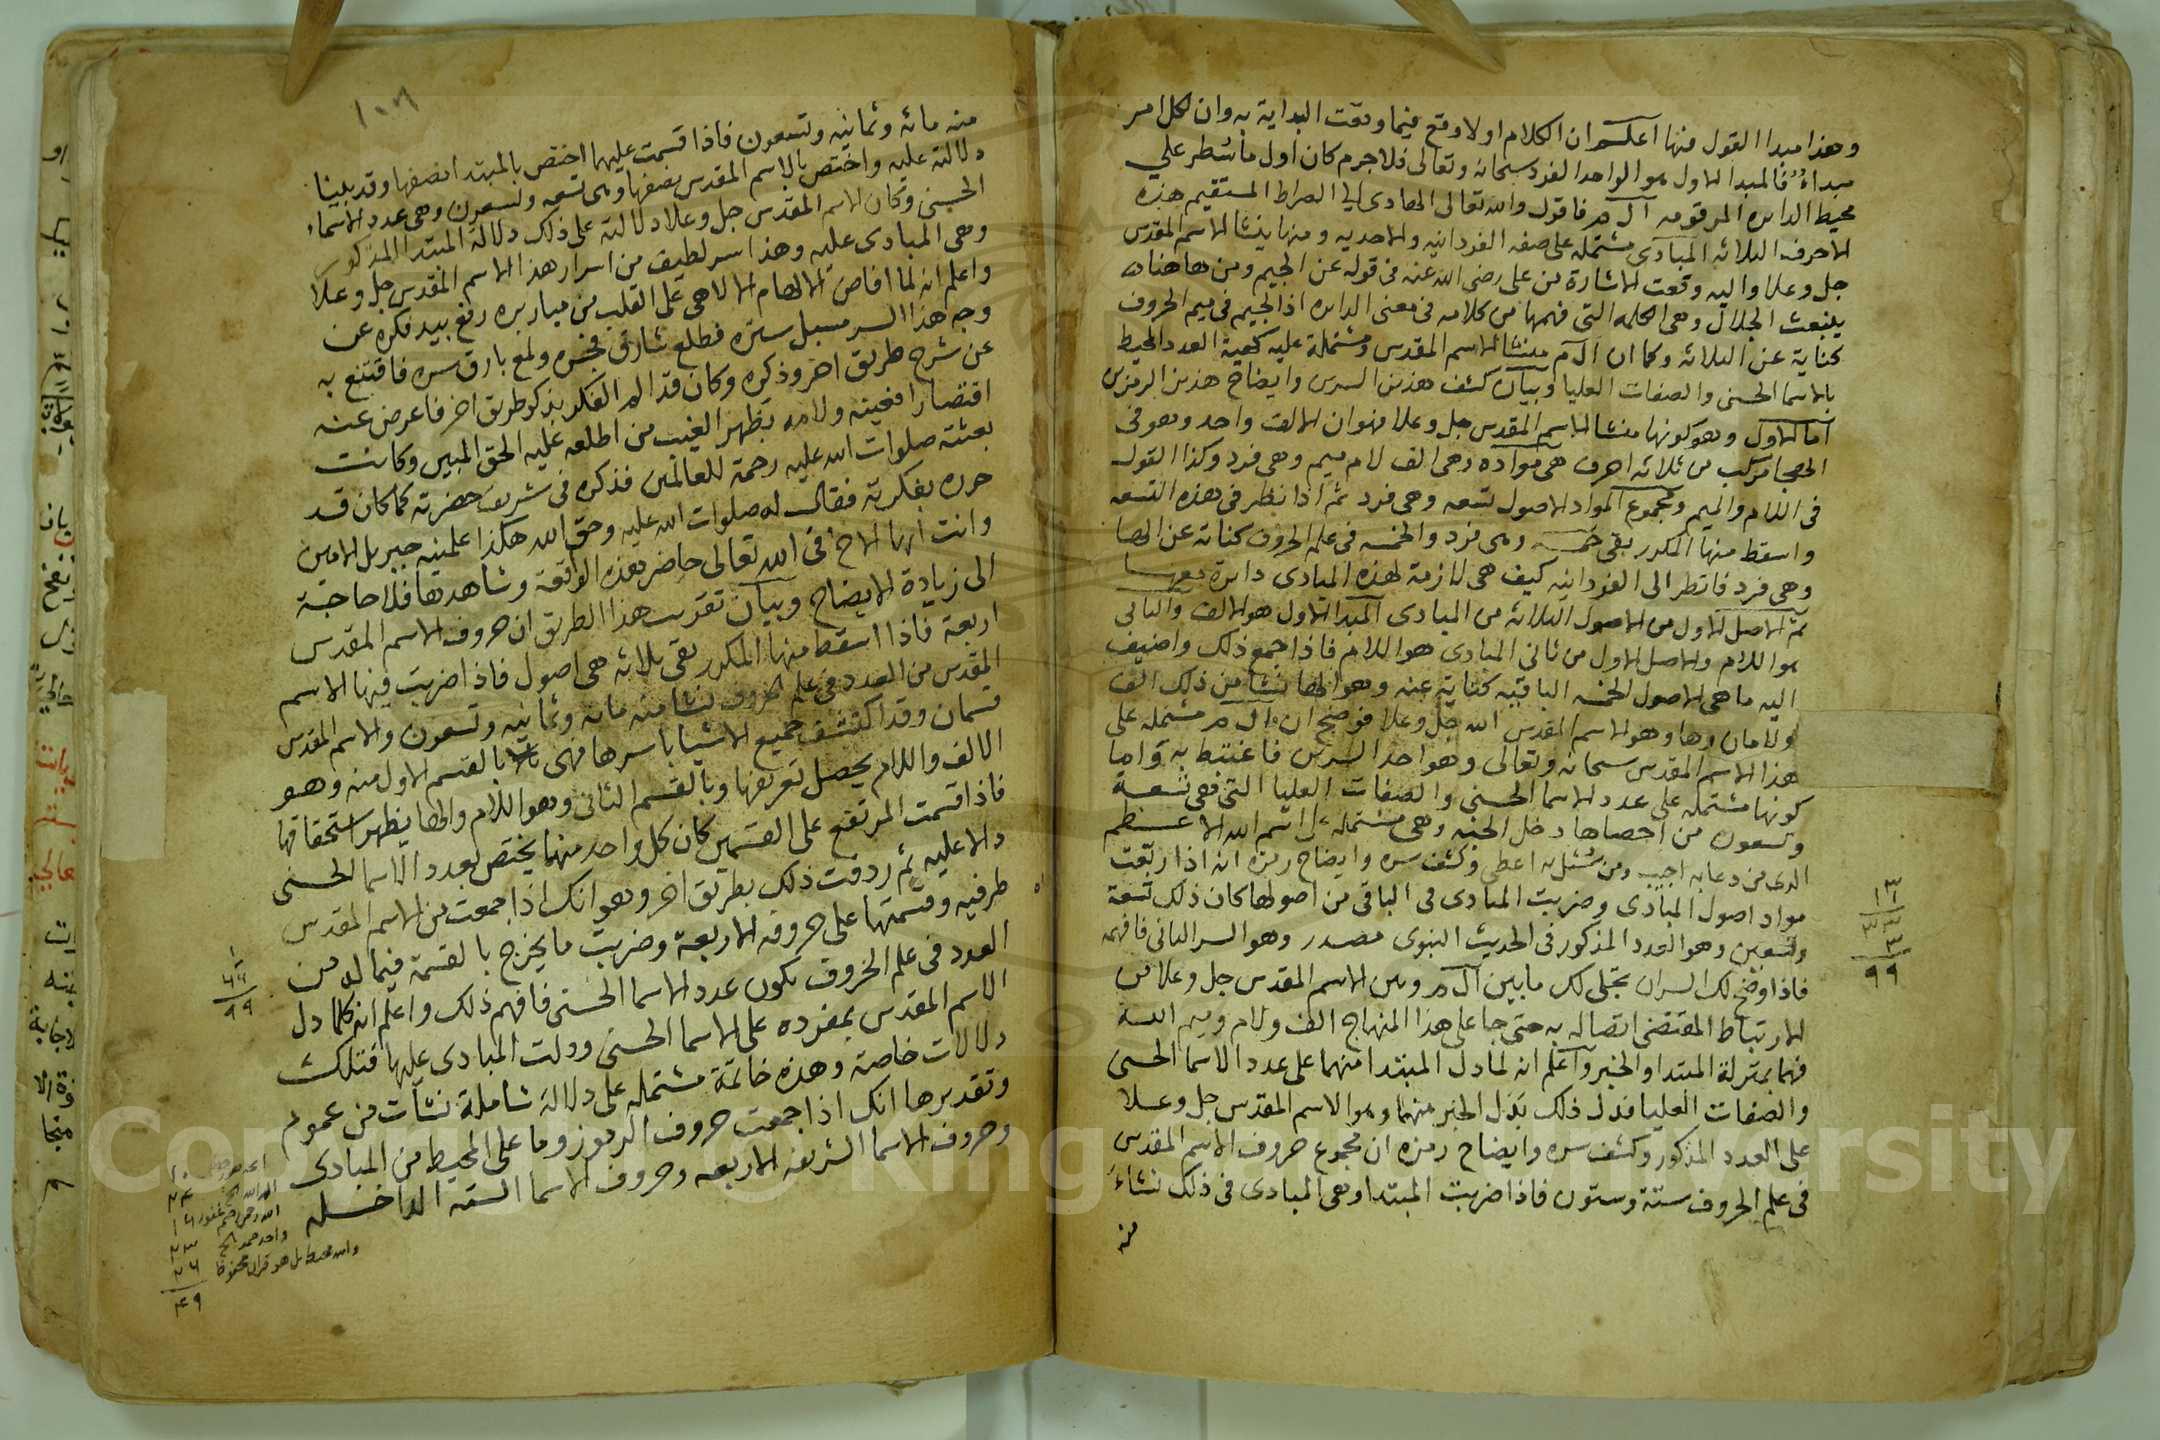 وهذا مبدا القول فيها اعلم ان الكلام اولا وقع فيما وقعت البداية به وان لكل امر
مبداءً فالمبدا الاول هو الواحد الفرد سبحانه وتعالى فلا جرم كان اول ما سُطر علي
محيط الدايره المرقومه الم فاقول والله تعالى الهادى الى الصراط المستقيم هذه
الاحرف الثلاثه المبادى مشتمله على صفه الفردانيه والاحديه ومنها ينشا الاسم المقدس
جل وعلا واليه وقعت الاشارة من على رضى الله عنه فى قوله عن الجيم ومن هاهنا
ينبعث الجلال وهى الكلمه التى فهمها من كلامه فى معنى الدايره اذ الجيم فى ميم الحروف
كناية عن الثلاثه وكما ان الم منشا الاسم المقدس ومشتملة عليه كهيئة العدد المحيط
بالاسما الحسنى والصفات العليا وبيان كشف هذين السرين وايضاح هذين الرمزين
اما الاول وهو كونها منشا الاسم المقدس جل وعلا فهو ان الالف واحد وهو فى
الهجا مركب من ثلاثه احرف هى مواده وهى الف لام ميم وهى فرد وكذا القول
فى اللام والميم ومجموع المواد الاصول تسعه وهى فرد ثم اذا نظر فى هذه التسعه
واسقط منها المكرر بقى خمسه وهى فرد والخمسه فى علم الحروف كناية عن الها
وهى فرد فانظر الى الفردانيه كيف هى لازمة لهذه المبادى دايرة معها
ثم الاصل الاول من الاصول الثلاثه من المبادى المبدا الاول هو الالف والثانى
هو اللام والاصل الاول من ثانى المبادى هو اللام فاذا جمع ذلك واضيف
اليه ما هى الاصول الخمسه الباقيه كناية عنه وهو الها نشا من ذلك الف
ولامان وها وهو الاسم المقدس الله جل وعلا فوضح ان الم مشتمله على
هذا الاسم المقدس سبحانه وتعالى وهو احد السرين فاغتبط به واما
كونها مشتمله على عدد الاسما الحسنى والصفات العليا التى فى تسعة
وتسعون من احصاها دخل الجنه وهى مشتملة على اسم الله الاعظم
الذى من دعا به اجيب ومن سُئل به اعطى فكشف سره وايضاح رمزه انه اذا ربعت
مواد اصول المبادى وضربت المبادى فى الباقى من اصولها كان ذلك تسعة
وتسعين وهو العدد المذكور فى الحديث النبوى مصدر وهو السر الثانى فافهمه
فاذا وضح لك السران تجلى لك ما بين الم وبين الاسم المقدس جل وعلا من
الارتباط المقتضى اتصاله به حتى جا على هذا المنهاج الف ولام وميم الله
فهما بمنزلة المبتدا والخبر واعلم انه لما دل المبتدا منهما على عدد الاسما الحسنى
والصفات العليا فدل ذلك بَدَل الخبر منهما وهو الاسم المقدس جل وعلا
على العدد المذكور وكشف سره وايضاح رمزه ان مجموع حروف الاسم المقدس
فى علم الحروف ستة وستون فاذا ضربت المبتدا وهى المبادى فى ذلك نشاءَ
منه
٣٣
٣
٩٩
منه مائه وثمانيه وتسعون فاذا قسمت عليهما اختص بالمبتدا نصفها وقد بينا
دلالته عليه واختص بالاسم المقدس نصفها وهى تسعه وتسعون وهى عدد الاسماء
الحسنى وكان الاسم المقدس جل وعلا دلالته على ذلك دلالة المبتدا المذكور
وهى المبادى عليه وهذا سر لطيف من اسرار هذا الاسم المقدس جل وعلا
واعلم انه لما افاض الالهام الالاهى على القلب من مبار بره رفع بيد فكره عن
وجه هذا السر مسبل ستره فطلع شارق فجره ولمع بارق سره فاقتنع به
عن شرح طريق اخر وذكره وكان قد الم الفكر بذكر طريق اخر فاعرض عنه
اقتصارا ولامه بظهر الغيب من اطلعه عليه الحق المبين وكانت
بعثته صلوات الله عليه رحمة للعالمين فذكره فى شريف حضرته كما كان قد
حرره بفكرته فقال له صلوات الله عليه وحق الله هكذا علمنيه جبريل الامين
وانت ايها الاخ فى الله تعالى حاضر هذه الواقعة وشاهدها فلا حاجة
الى زيادة الايضاح وبيان تقدير هذا الطريق ان حروف الاسم المقدس
اربعة فاذا اسقط منها المكرر بقى ثلاثه هى اصول فاذا ضربت فيها الاسم
المقدس من العدد فى علم الحروف نشا منه مائه وثمانيه وتسعون والاسم المقدس
قسمان وقد اكتشف جميع الاشيا باسرها فهى بالقسم الاول منه وهو
الالف واللام يحصل تعريفها وبالقسم الثانى وهو اللام والها يظهر استحقاقها
فاذا قسمت المرتفع على القسمين كان كل واحد منهما يختص بعدد الاسما الحسنى
دالا عليه ثم ردفت ذلك بطريق اخر وهو انك اذا جمعت من الاسم المقدس
طرفيه وقسمتها على حروفه الاربعة وضربت ما يخرج بالقسمة فيما له من
العدد فى علم الحروف يكون عدد الاسما الحسنى فافهم ذلك واعلم انه كلما دل
الاسم المقدس بمفرده على الاسما الحسنى ودلت المبادى عليها فتلك
دلالات خاصة وهذه خاتمة مشتمله على دلالة شاملة نشات من عموم
وتقديرها انك اذا جمعت حروف الرموز وما على المحيط من المبادى
وحروف الاسما الشريفه الاربعه وحروف الاسما الستة الداخله
٦٦
٩٩
Copyright © King Saud University